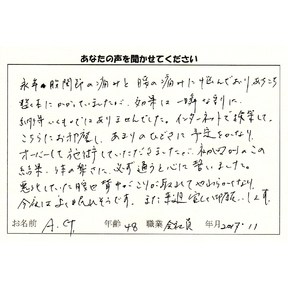 あなたの声を聞かせてください
永年、股関節の痛みと腰の痛みに悩んでおりあちこち
整体にかかっていましたが、効果は一瞬な割に
納得いくものではありませんでした。インターネットで検索して
こちらにお邪魔し、あまりのひどさに予定をかなり
オーバーして施術していただきましたが、この
結果、体の軽さに、必ず通うと心に誓いました。
悪化していた腰も背中のこりが取れてやわらかくなり
今夜はよく眠れそうです。また来週宜しくお願いします。
お名前 A.K 年齢 48 職業 会社員 年月 2017.11